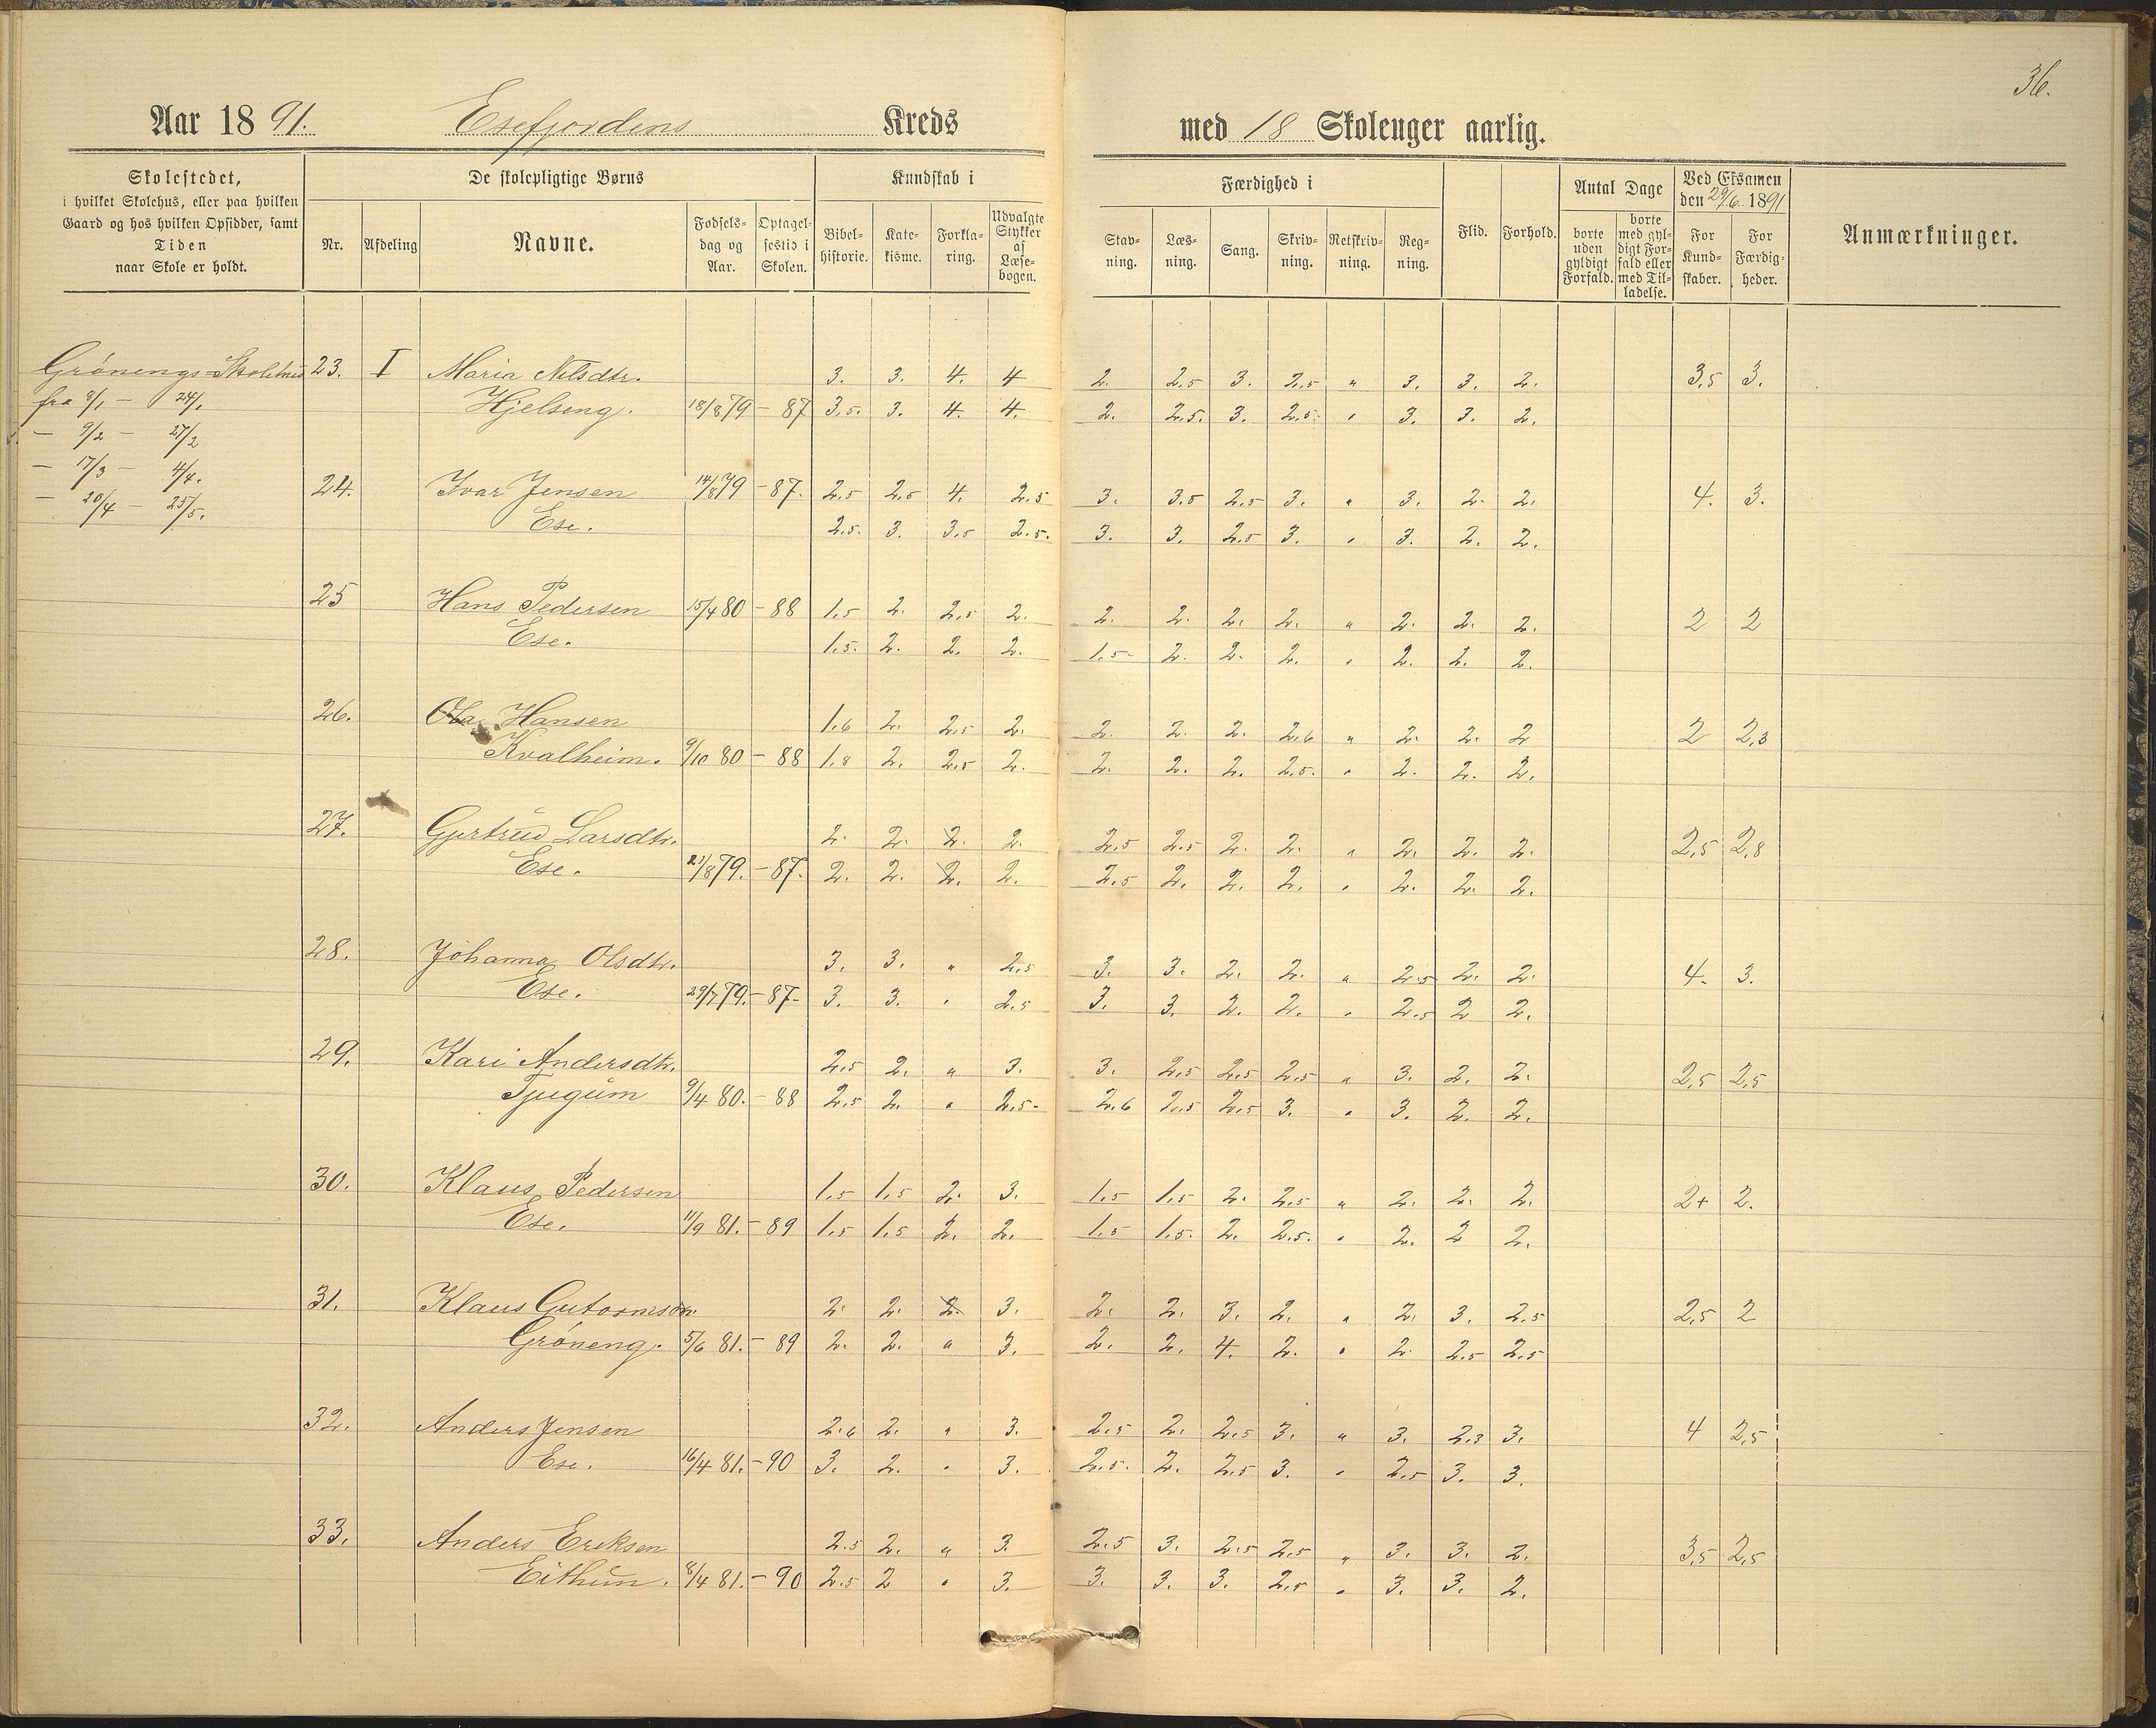 36.
Aar 1891. Esefjordens Kreds med 18 Skoleuger aarlig.
Skolestedet, i hvilket Skolehus, eller paa hvilken Gaard og hos hvilken Opsidder, samt Tiden naar Skole er holdt.
De skolepligtige Børns
Nr. Afdeling Navne. Fødselsdag og Aar. Optagelsestid i Skolen.
Kundskab i
Bibelhistorie. Katekisme. Forklaring. Udvalgte Stykker af Læsebogen.
Færdighed i
Stavning. Læsning. Sang. Skrivning. Retskrivning. Regning.
Flid. Forhold.
Antal Dage
borte uden gyldigt Forfald. borte med gyldigt Forfald eller med Tilladelse.
Ved Eksamen den 29/6. 1891
For Kundskaber. For Færdigheder.
Anmærkninger.
Grønengs-Skolehus 23. I Maria Nilsdtr. 3. 3. 4. 4 2. 2.5 3. 2.5 " 3. 3. 2. 3,5 3.
fra 8/1 - 24/1 Hjelseng. 18/8 79 - 87 3.5. 3. 4. 4. 2. 2.5. 3. 2.5. " 3. 3. 2.
- 9/2 - 27/2
- 17/3 - 4/4.
24. Ivar Jensen 14/8 79 - 87. 2.5 2.5 4. 2.5 3. 3.5 2.5 3. " 3. 2. 2. 4. 3.
- 20/4 - 25/5. Ese. 2.5. 3. 3.5 2.5. 3. 3. 2.5 3. " 3. 2. 2.
25 Hans Pedersen 15/4 80 - 88 1.5 2. 2.5 2. 2. 2. 2. 2. " 2. 2. 2. 2 2
Ese. 1.5. 2. 2. 2. 1.5- 2. 2. 2. " 2. 2. 2.
26. Ola Hansen 1.6 2. 2.5 2. 2. 2. 2. 2.6 " 2. 2. 2 2 2,3
Kvalheim. 9/10 80 - 88 1.8 2. 2.5 2. 2. 2. 2. 2.5. " 2. 2. 2.
27. Gjertrud Larsdtr. 2. 2. 2. 2. 2.5 2.5 2. 2. " 2. 2. 2. 2,5 2,8
Ese. 21/8 79. - 87. 2. 2. 2. 2. 2.5 2. 2. 2. " 2. 2. 2.
28. Johanna Olsdtr. 3. 3. " 2.5 3. 3. 2. 2. " 2.5 2. 2. 4. 3.
Ese. 29/7 79. - 87- 3. 3. " 2.5 3. 3. 2. 2. " 2.5 2 2.
29. Kari Andersdtr. 2.5 2. " 3. 3. 2.5 2.5 2.5 " 3. 2. 2. 2,5 2,5
Tjugum 9/4 80. - 88 2.5 2. " 2.5- 2.6 2.5 2.5 3. " 3. 2. 2.
30. Klaus Pedersen 1.5 1.5 2. 3. 1.5 1.5 2. 2.5 " 2. 2. 2. 2+ 2.
Ese. 11/9 81. - 89 1.5 1.5 2. 2. 1.5 1.5. 2. 2.5. " 2. 2 2.
31. Klaus Gutormsøn. 2. 2. 2. 3. 2. 2. 3. 2. " 2. 3. 2.5 2,5 2
Grøneng. 5/6 81. - 89 2. 2. " 3. 2. 2. 4. 2. " 2. 2.5 2.5
32. Anders Jensen 2.6 2. " 3. 2.5 2. 2.5 3. " 3. 2.3 3. 4 2,5
Ese. 16/4 81. - 90 3. 2. " 3. 2.5. 2. 2.5 3. " 2.5 3. 3.
33. Anders Eriksen 2.5 2. " 3. 2.5 3. 2.5 2.5 " 3. 3. 2. 3,5 2,5
Eithun. 8/4 81. - 90 2.5 2 " 3. 3. 3. 3. 2.5 " 3. 3. 2.